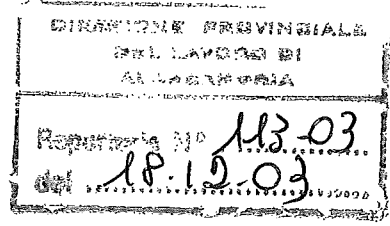 DIREZIONE PROVINCIALE
DEL LAVORO DI
ALESSANDRIA
Repertorio N° 113-03
del 18.12.03